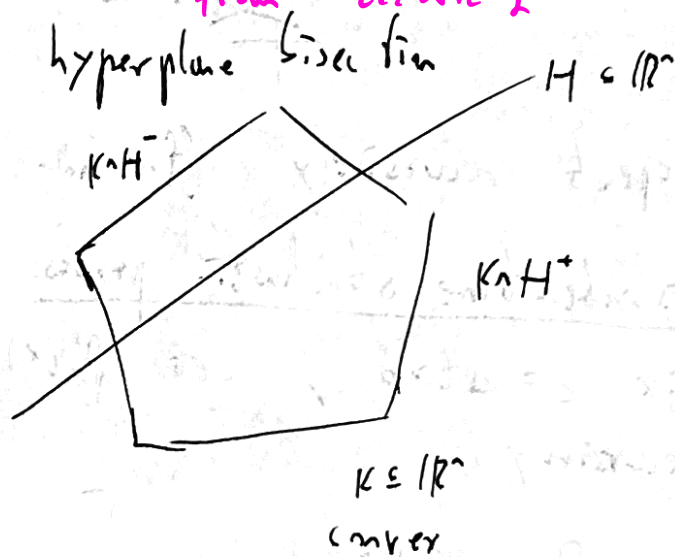 from
hyperplane bisection
H ⊆ ℝⁿ
K∩H⁻
K∩H⁺
K ⊆ ℝⁿ
convex